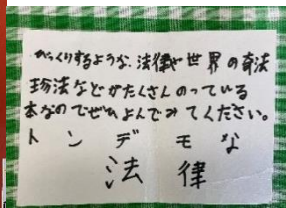 びっくりするような、法律や世界の奇法
珍法などがたくさんのっている
本なのでぜひよんでみてください。
トンデモな
法律